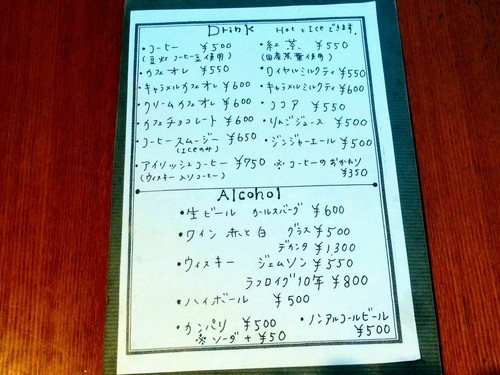 Drink Hot と Ice できます。
・コーヒー ¥500
(豆炒コーヒー豆使用)
・カフェオレ ¥550
・キャラメルカフェオレ ¥600
・クリームカフェオレ ¥600
・カフェチョコレート ¥600
・コーヒースムージー ¥650
(Iceのみ)
・アイリッシュコーヒー ¥750
(ウィスキー入りコーヒー)
・紅茶 ¥550
(国産茶葉使用)
・ロイヤルミルクティ ¥550
・キャラメルミルクティ ¥600
・ココア ¥550
・りんごジュース ¥500
・ジンジャーエール ¥500
※コーヒーのおかわり
¥350
Alcohol
・生ビール カールスバーグ ¥600
・ワイン 赤と白 グラス ¥500
デカンタ ¥1,300
・ウィスキー ジェムソン ¥550
ラフロイグ10年 ¥800
・ハイボール ¥500
・カンパリ ¥500
※ソーダ+¥50
・ノンアルコールビール
¥500